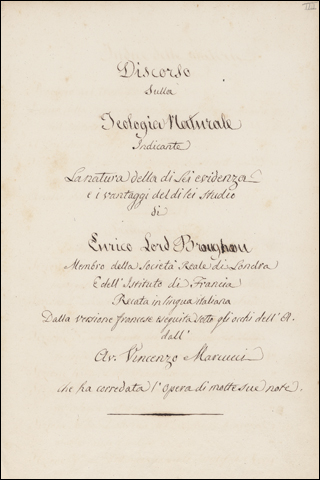 Discorso
Sulla
Teologia Naturale
Indicante
La natura della di lei evidenza
e i vantaggi del di lei studio
di
Enrico Lord Brougham
Membro della Società Reale di Londra
E dell'Istituto di Francia
Recata in lingua italiana
Dalla versione francese eseguita sotto gli occhi dell'A.
dall'
Av. Vincenzo Marucci
che ha corredata l'opera di molte sue note.